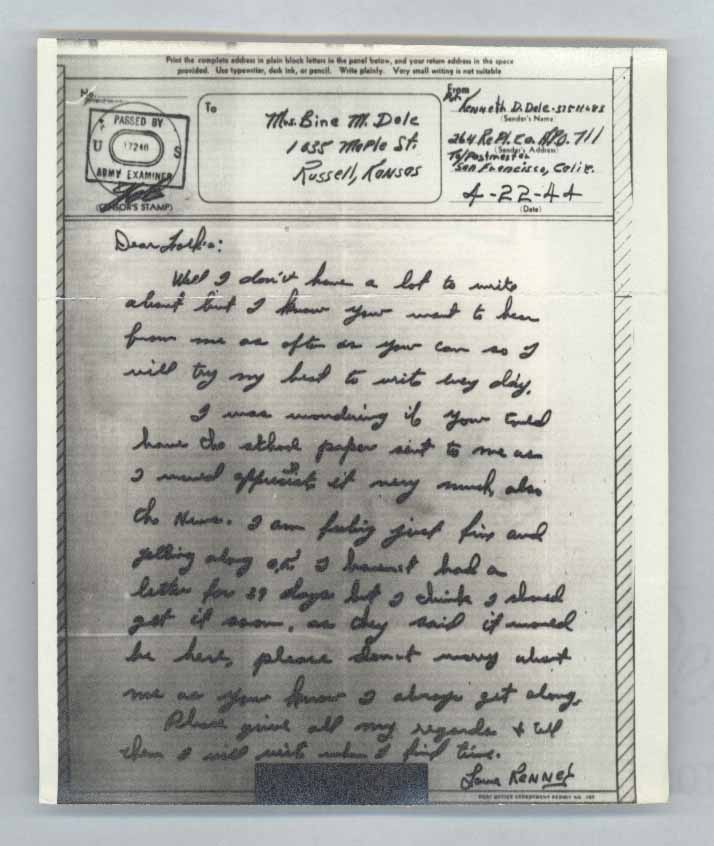 Print the complete address in plain block letters in the panel below, and your return address in the space
provided. Use typewriter, dark ink, or pencil. Write plainly. Very small writing is not suitable
No.
PASSED BY
U 17240 S
ARMY EXAMINER
(CENSOR'S STAMP)
To
Mrs. Bina M. Dole
1035 Maple St.
Russell, Kansas
From
Pvt. Kenneth D. Dole-
(Sender's Name)
264 Repl. Co. A.P.O. 711
(Sender's Address)
℅ Postmaster
San Francisco, Calif.
4-22-44
(Date)
Dear Folks:
Well I don't have a lot to write
about but I know you want to hear
from me as often as you can so I
will try my best to write every day.
I was wondering if you could
have the school paper sent to me as
I would appreciate it very much, also
the News. I am feeling just fine and
getting along O.K. I haven't had a
letter for 39 days but I think I should
get it soon, as they said it would
be here, please don't worry about
me as you know I always get along.
Please give all my regards & tell
them I will write when I find time.
Love Kenney
POST OFFICE DEPARTMENT PERMIT NO.